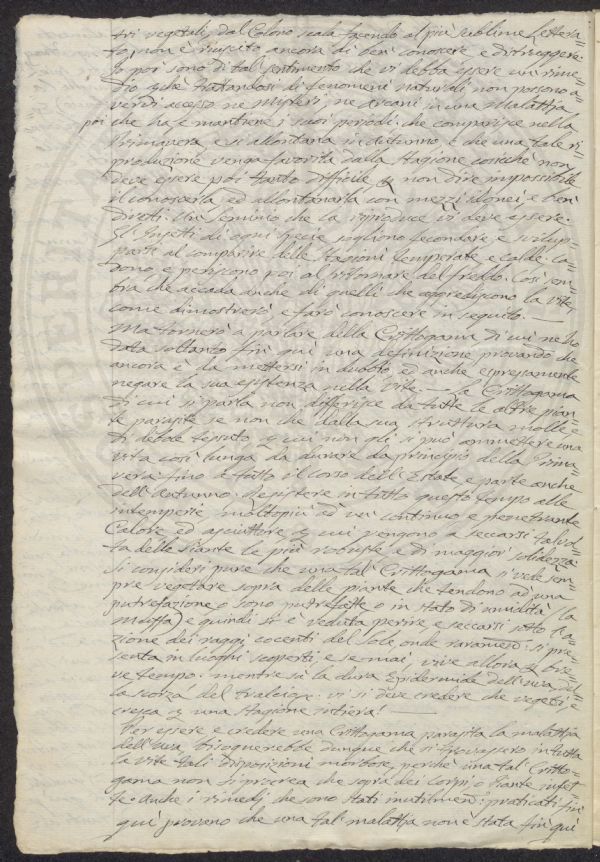 tri vegetali, dal Colono scala facendo al più sublime Lettera=
to, non è riuscito ancora di ben conoscere e distruggere.
Io poi sono di tal sentimento che vi debba essere un rime=
dio, che trattandosi di fenomeni naturali non possono a=
verdi accesso ne Misteri, ne Arcani in una Malattia
poi che ha, e mantiene i suoi periodi: che comparisce nella
Primavera, e si allontana in Autunno, è che una tale ri=
produzione venga favorita dalla Stagione cosicchè non
deve essere poi tanto difficile p non dire impossibile
il conoscerla ed allontanarla con mezzi idonei e ben
diretti. Un Semino che la riproduce vi deve essere.
Gl' Insetti di ogni specie sogliono fecondare, e svilup=
parsi al comparire delle Stagioni temperate e calde: ca=
dono, e periscono poi al ritornare del freddo. Così sem=
bra che accada anche di quelli che aggrediscono la vite,
come dimostrerò, e farò conoscere in seguito. —
Ma tornerò a parlare della Crittogama di cui ne ho
data soltanto fin quì una definizione provando che
ancora è da mettersi in dubbio, ed anche espressamente
negare la sua esistenza nella Vite. — La Crittogama
di cui si parla non differisce da tutte le altre pian=
te parasite se non che dalla sua struttura molle e
di debole tessuto, p cui non gli si può ammettere una
vita così lunga da durare da principio della Prima=
vera fino a tutto il Corso dell' Estate e parte anche
dell' Autunno. Resistere in tutto questo tempo alle
intemperie moltopiù ad un continuo e penetrante
Calore ed asciuttore p cui vengono a seccarsi talvol=
ta delle Piante le più robuste e di maggior solidezza
si consideri pure che una tal Crittogama si vede sem=
pre vegetare sopra delle piante che tendono ad una
putrefazione o sono putrefatte o in stato di umidità (la
Muffa) e quindi si è veduta perire e seccarsi sotto l' a=
zione dei raggi cocenti del Sole, onde raramente si pre=
senta in luoghi scoperti, e semai, vive allora p bre=
ve tempo: mentre sù la dura Epidermide dell' uva, del=
la scorza del tralcio p. vi si deve credere che vegeti, e
cresca p una Stagione intiera! —
Per essere e credere una Crittogama parasita la malattia
dell' Uva bisognerebbe dunque che si trovassero in tutta
la vite tali disposizioni morbose, perchè una tal Critto=
gama non si procrea che sopra dei Corpi, o Piante infet=
te. Anche i rimedj che sono stati inutilmente praticati fin
quì provano che una tal malattia non è stata fin quì